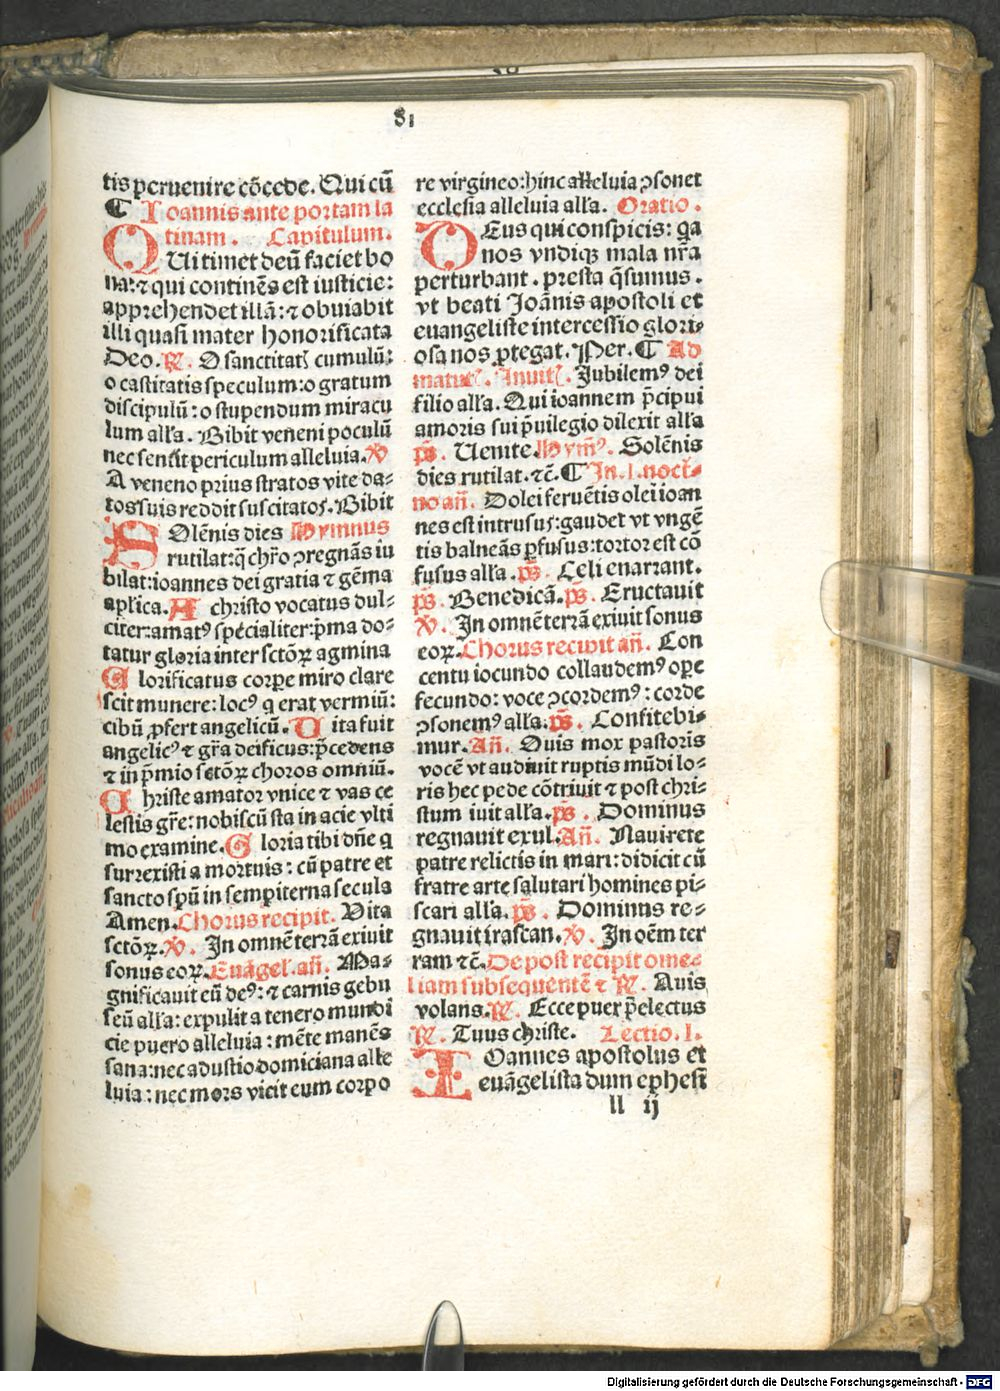 81
tis peruenire cõcede. Qui cũ
¶ Ioannis ante portam la
tinam. Capitulum.
QUi timet deũ faciet bo
na: ⁊ qui continẽs est iusticie:
apprehendet illã: ⁊ obuiabit
illi quasi mater honorificata
Deo. ℟. O sanctitatꝭ cumulũ:
o castitatis speculum: o gratum
discipulũ: o stupendum miracu
lum alľa. Bibit veneni poculũ
nec sensit periculum alleluia. ℣
A veneno prius stratos vite da⸗
tos suis reddit suscitatos. Bibit
SOlẽnis dies Hymnus
rutilat: q̃ chr̃o ꝯregnãs iu
bilat: ioannes dei gratia ⁊ gẽma
apľica. A christo vocatus dul⸗
citer: amatꝰ specialiter: p̃ma do⸗
tatur gloria inter sctõꝝ agmina
Glorificatus corpe miro clare
scit munere: locꝰ q erat vermiũ:
cibũ ꝓfert angelicũ. Uita fuit
angelicꝰ ⁊ gr̃a deificus: p̃cedens
⁊ in p̃mio sctõꝝ choros omniũ.
Christe amator vnice ⁊ vas ce
lestis gr̃e: nobiscũ sta in acie vlti
mo examine. Gloria tibi dñe q
surrexisti a mortuis: cũ patre et
sancto spũ in sempiterna secula
Amen. Chorus recipit. Vita
sctõꝝ. ℣. In omnẽ terrã exiuit
sonus eoꝝ. Euãgel. añ. Ma⸗
gnificauit eũ deꝰ: ⁊ carnis gebu
seũ alľa: expulit a tenero mundi
cie puero alleluia: mẽte manẽs
sana: nec adustio domiciana alle
luia: nec mors vicit eum corpo
re virgineo: hinc alleluia ꝯsonet
ecclesia alleluia alľa. Oratio.
DEus qui conspicis: q̃a
nos vndiqꝫ mala nr̃a
perturbant. presta q̃sumus.
vt beati Joãnis apostoli et
euangeliste intercessio glori⸗
osa nos ꝓtegat. Per. ¶ Ad
matuť. Inuiť. Jubilemꝰ dei
filio alľa. Qui ioannem p̃cipui
amoris sui p̃uilegio dilexit alľa
ps̃. Uenite. Hym̃ꝰ. Solẽnis
dies rutilat. ⁊c̃. ¶ In .I. noct̃⸗
no añ. Dolei feruẽtis olei ioan
nes est intrusus: gaudet vt vngẽ
tis balneãs ꝑfusus: tortor est cõ
fusus alľa. ps̃. Celi enarrant.
ps̃. Benedicã. ps̃. Eructauit
℣. In omnẽ terrã exiuit sonus
eoꝝ. Chorus recipit añ. Con
centu iocundo collaudemꝰ ope
fecundo: voce ꝯcordemꝰ: corde
ꝯsonemꝰ alľa. ps̃. Confitebi⸗
mur. Añ. Ouis mox pastoris
vocẽ vt audiuit ruptis mũdi lo⸗
ris hec pede cõtriuit ⁊ post chri⸗
stum iuit alľa. ps̃. Dominus
regnauit exul. Añ. Naui rete
patre relictis in mari: didicit cũ
fratre arte salutari homines pi⸗
scari alľa. ps̃. Dominus re⸗
gnauit irascan. ℣. In oẽm ter
ram ⁊c̃. De post recipit ome⸗
liam subsequentẽ ⁊ ℟. Auis
volans. ℟. Ecce puer p̃electus
℟. Tuus christe. Lectio. I.
IOannes apostolus et
euãgelista dum ephesi
ll ij
Digitalisierung gefördert durch die Deutsche Forschungsgemeinschaft - DFG